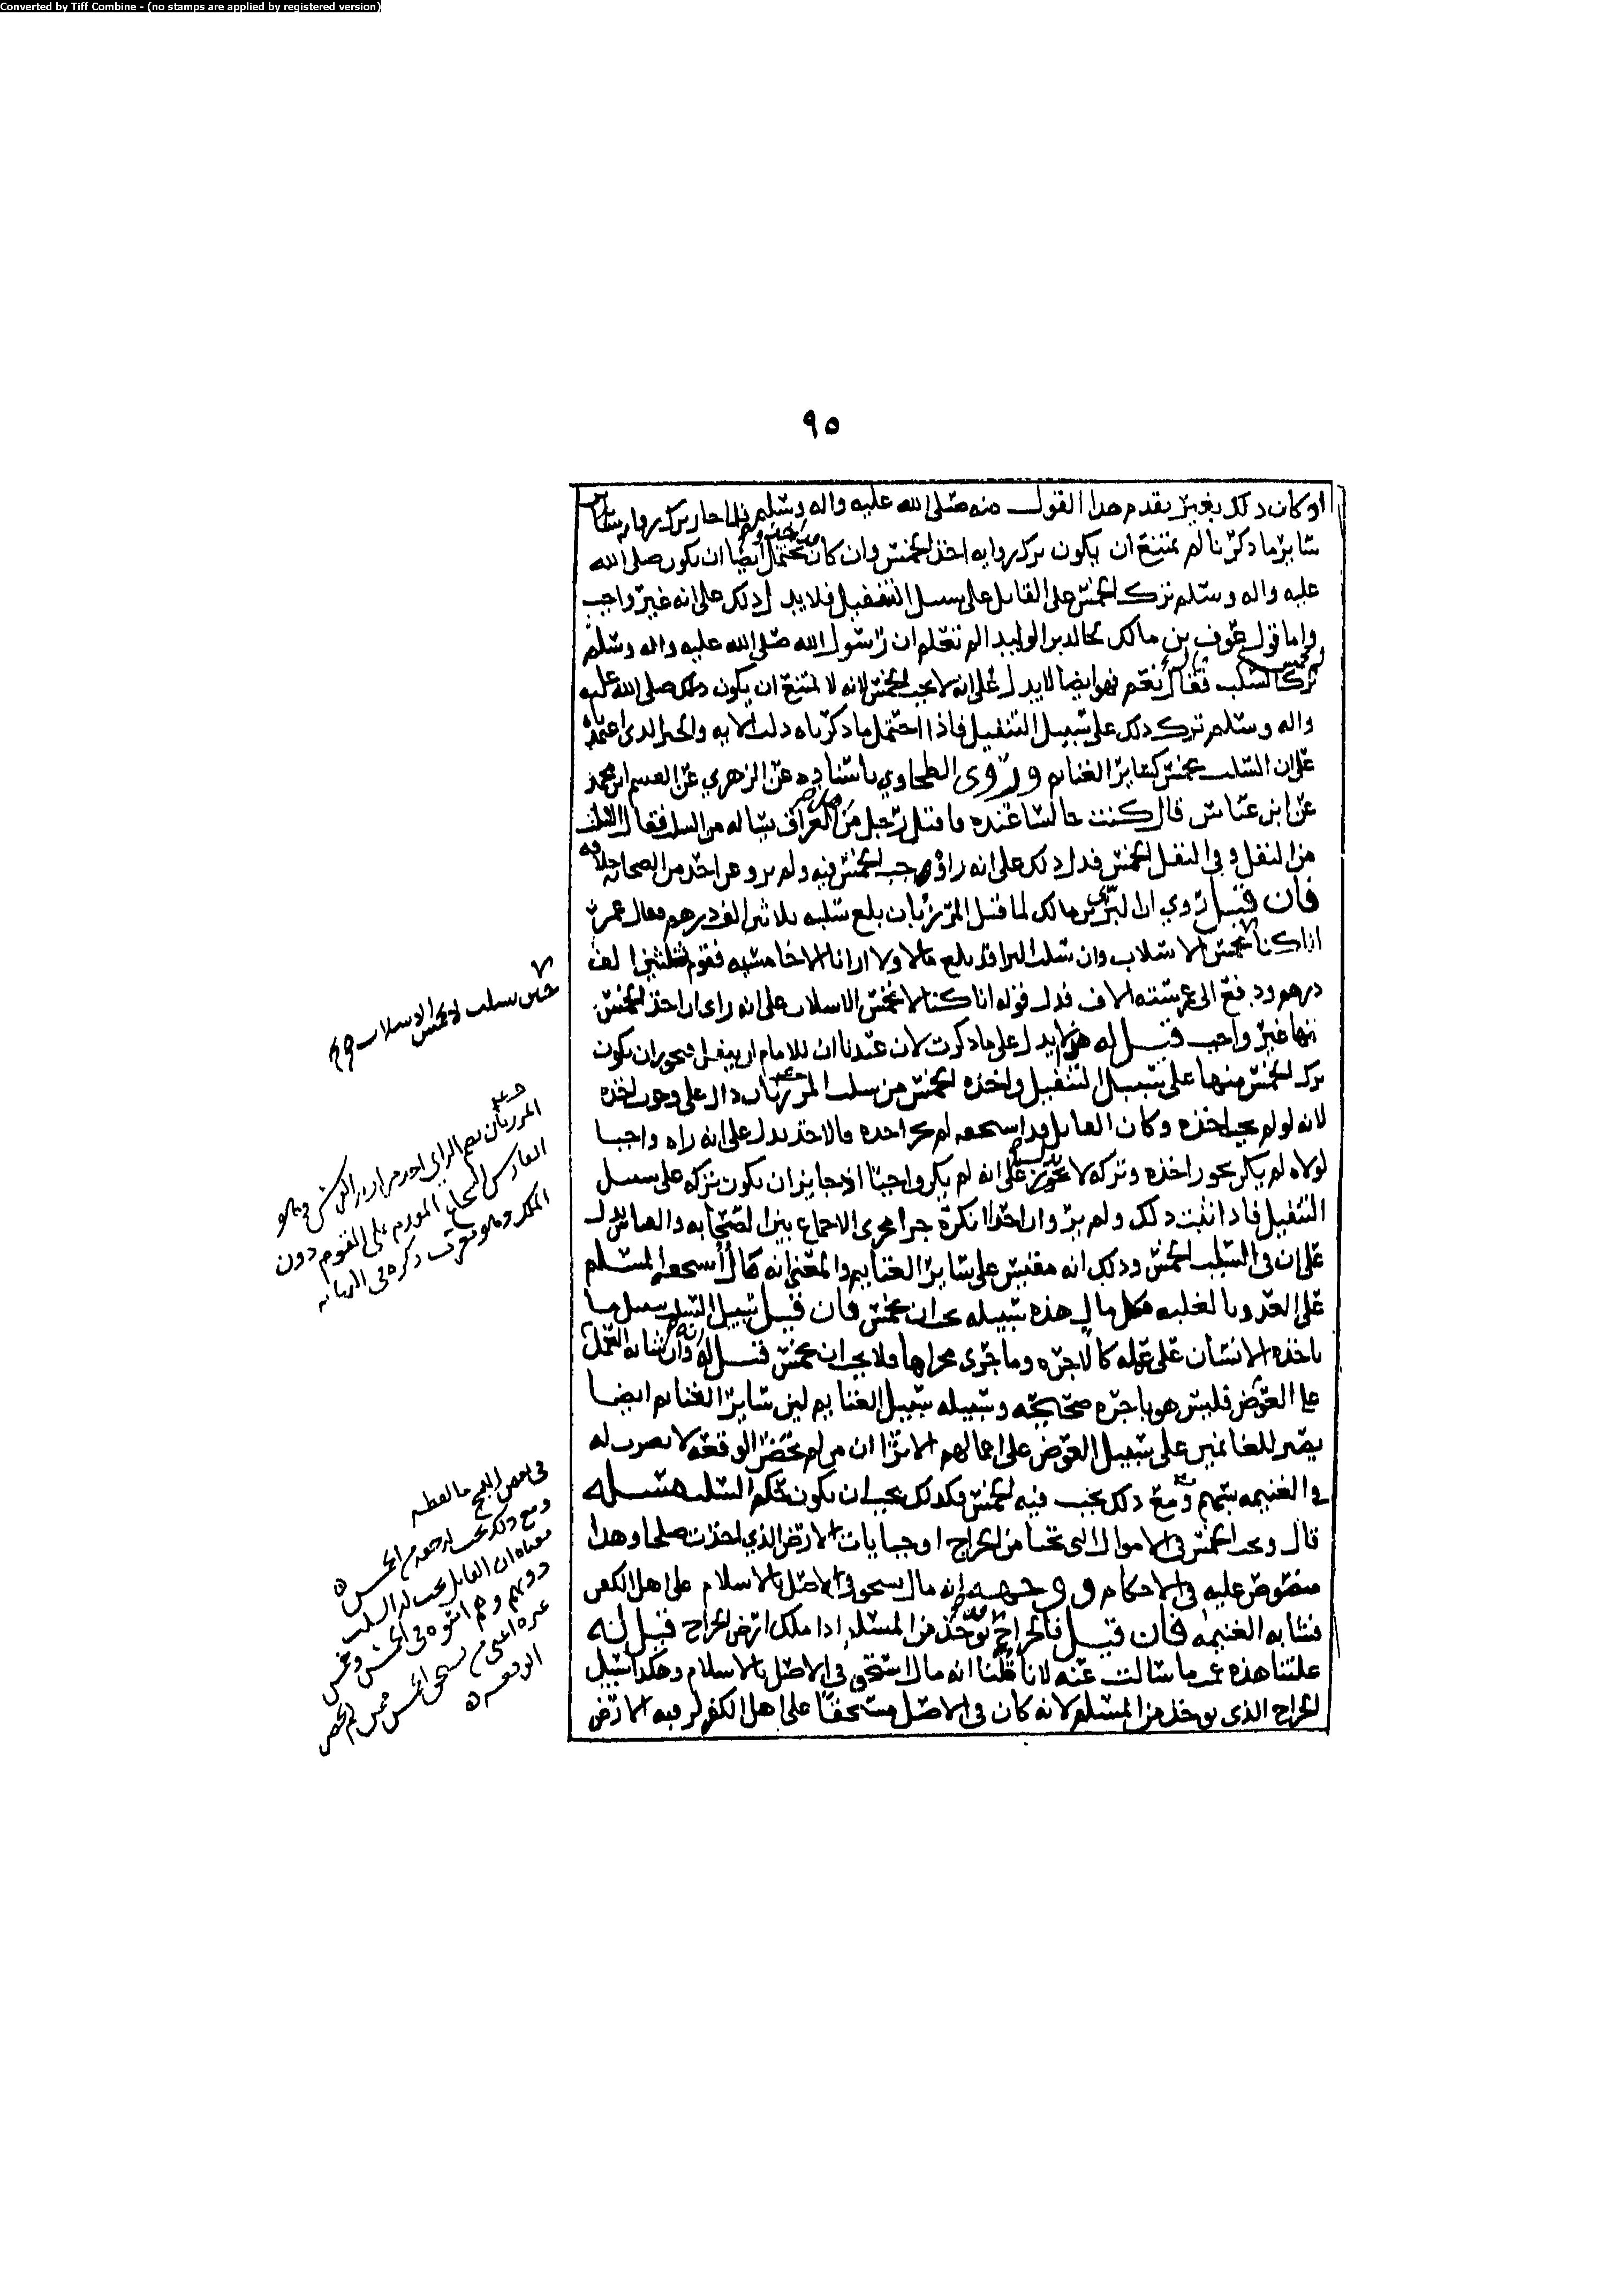 Converted by Tiff Combine - (no stamps are applied by registered version)
٩٥
او كان ذلك بغير تقدم هذا القول منه صلى الله عليه واله وسلم فلما جاز ترك رواية
سائر ما ذكرنا لم يمتنع ان يكون ترك رواية اخذ الخمس وان كان يحتمل ايضا ان يكون صلى الله
عليه واله وسلم ترك الخمس على القاتل على سبيل التنفيل فلا يدل ذلك على انه غير واجب
واما قول عوف بن مالك لخالد بن الوليد الم تعلم ان رسول الله صلى الله عليه واله وسلم
ترك السلب فقال نعم فهو ايضا لا يدل على انه لا يجب الخمس لانه لا يمتنع ان يكون صلى الله عليه
واله وسلم ترك ذلك على سبيل التنفيل فاذا احتمل ما ذكرناه دلت الاية والخبر الذي اعتمدناه
على ان السلب يخمس كسائر الغنائم وروى الطحاوي باسناده عن الزهري عن القسم ابن محمد
عن ابن عباس قال كنت جالسا عنده فاقبل رجل من اهل العراق يساله من السلب فقال السلب
من النفل وفي النفل الخمس فدل ذلك على انه راى وجوب الخمس فيه ولم يرو عن احد من الصحابة خلافه
فان قيل روي ان البرى بن مالك لما قتل المرزبان بلغ سلبه ثلاثين الف درهم فقال عمر
انا كنا لا نخمس الاسلاب وان سلب البرا قد بلغ مالا ولا ارانا الا خامسيه فقوم ثلثين الف
درهم ودفع الى عمر ستة الاف فدل قوله انا كنا لا نخمس الاسلاب على انه راى ان اخذ الخمس
منها غير واجب قيل له هذا لا يدل على ما ذكرت لان عندنا ان للامام ان ينفل فيجوز ان يكون
ترك الخمس منها على سبيل التنفيل واخذه الخمس من سلب المرزبان دال على وجوب اخذه
لانه لو لم يجب اخذه وكان القاتل قد استحقه لم يجز اخذه فالاخذ يدل على انه راه واجبا
لولاه لم يكن يجوز اخذه وتركه لا يدل على انه لم يكن واجبا اذ جايز ان يكون تركه على سبيل
التنفيل فاذا ثبت ذلك ولم يرو ان احدا انكره جرا مجرى الاجماع بين الصحابة والقياس يدل
على ان في السلب الخمس وذلك انه مقيس على سائر الغنايم والمعنى انه مال استحقه المسلم
على العدو بالغلبة فكل مال هذه سبيله يجب ان يخمس فان قيل سبيل السلب سبيل ما
ياخذه الانسان على عمله كالاجره وما جرى مجراها فلا يجب ان يخمس قيل له انه وان شابه العمل
على العوض فليس هو باجره صحيحة وسبيله سبيل الغنايم لان سائر الغنائم ايضا
يصير للغانمين على سبيل العوض على اعمالهم الا ترا ان من لم يحضر الوقعة لا يضرب له
في الغنيمة بسهم ومع ذلك يجب فيه الخمس فكذلك يجب ان يكون حكم السلب مسله
قال ويجب الخمس في الاموال التي تجبا من الخراج او جبايات الارض الذي اخذت صلحا وهذا
منصوص عليه في الاحكام ووجهه انه مال يستحق في الاصل بالاسلام على اهل الكفر
فشابه الغنيمة فان قيل فالخراج يوخذ من المسلم اذا ملك ارض الخراج قيل له
علتنا هذه عما سالت عنه لانا قلنا انه مال استحق في الاصل بالاسلام وهكذا سبيل
الخراج الذي يوخذ من المسلم لانه كان في الاصل مستحقا على اهل الكفر لرقبة الارض
المرزبان بضم الزاي احد مرازبة الفرس وهو
الفارس الشجاع المقدم على القوم دون
الملك وهو معرب ذكره في النهاية
في بعض النسخ ما لفظه